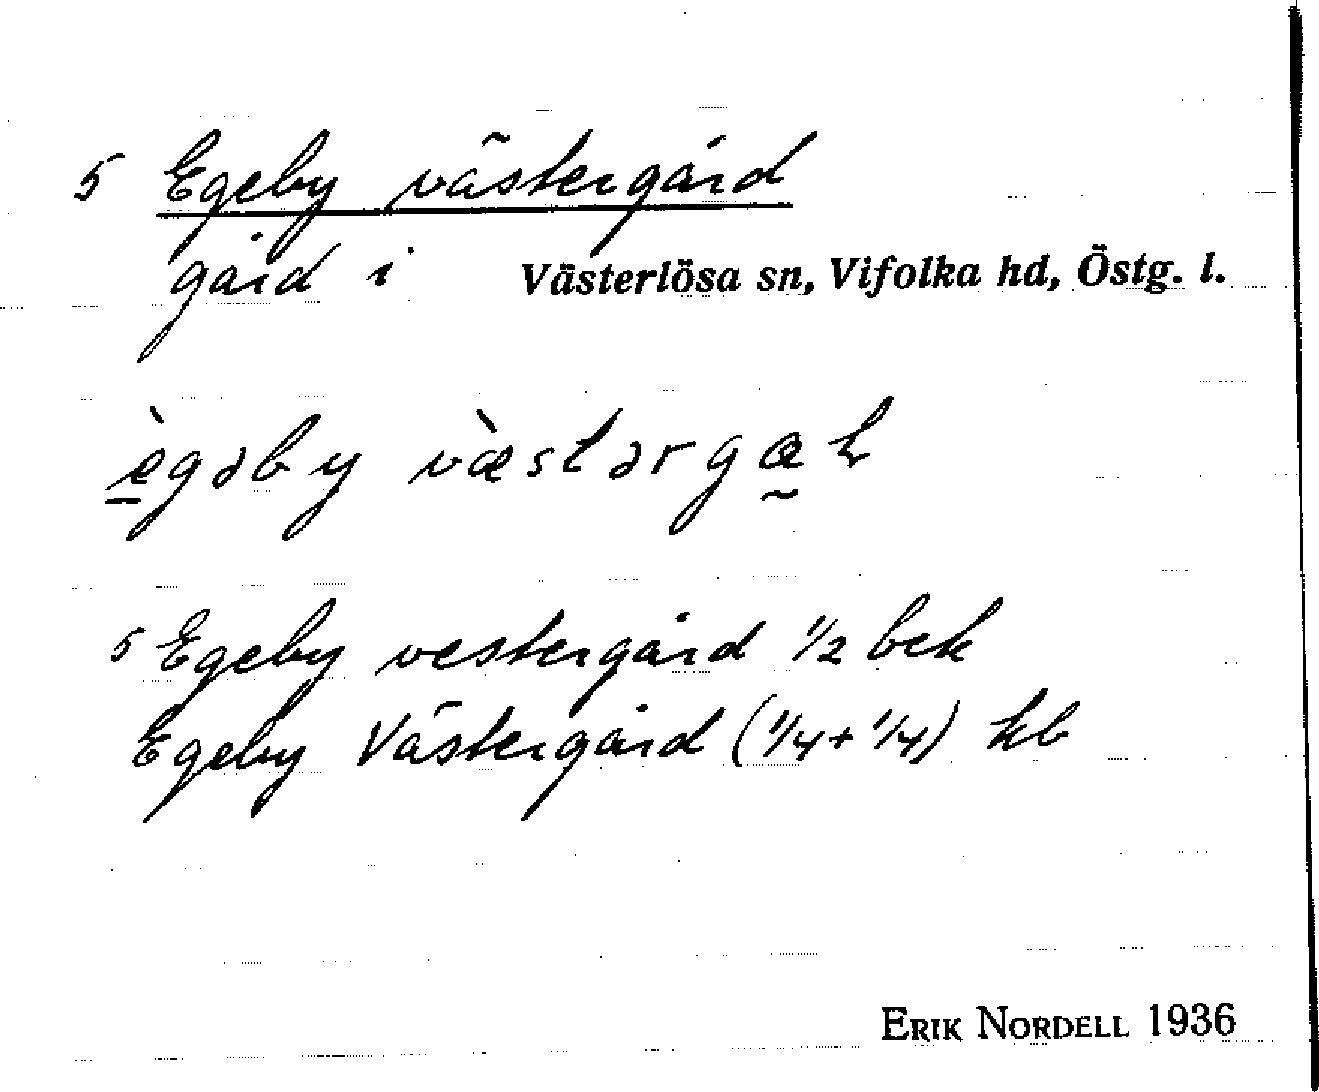 5 Egeby västergård
gård i Västerlösa sn, Vifolka hd, Östg. l.
ègəby væ̀stərgæ̰ɫ
5 Egeby vestergård 1/2 bek
Egeby Västergård (1/4 + 1/4) hb
ERIK NORDELL 1936